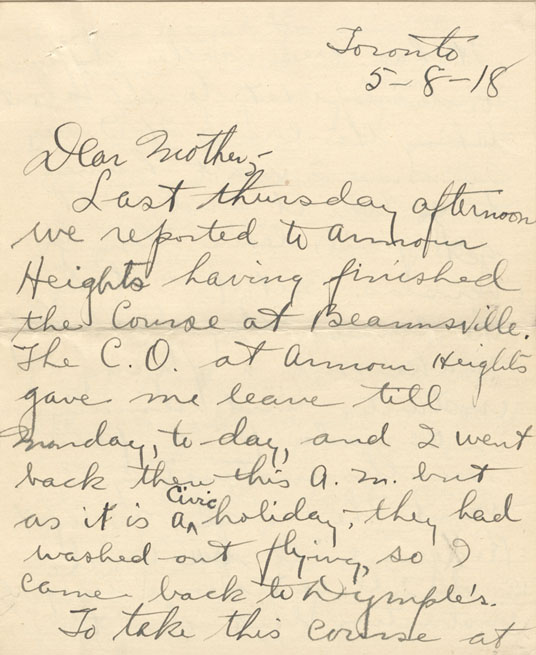 Toronto
5-8-18
Dear Mother;-
Last thursday afternoon
we reported to Armour
Heights having finished
the Course at Beamsville.
The C.O. at Armour Heights
gave me leave till
Monday, to-day, and I went
back there this A.M. but
as it is a Civic holiday, they had
washed out flying, so I
came back to Dymple's.
To take this course at